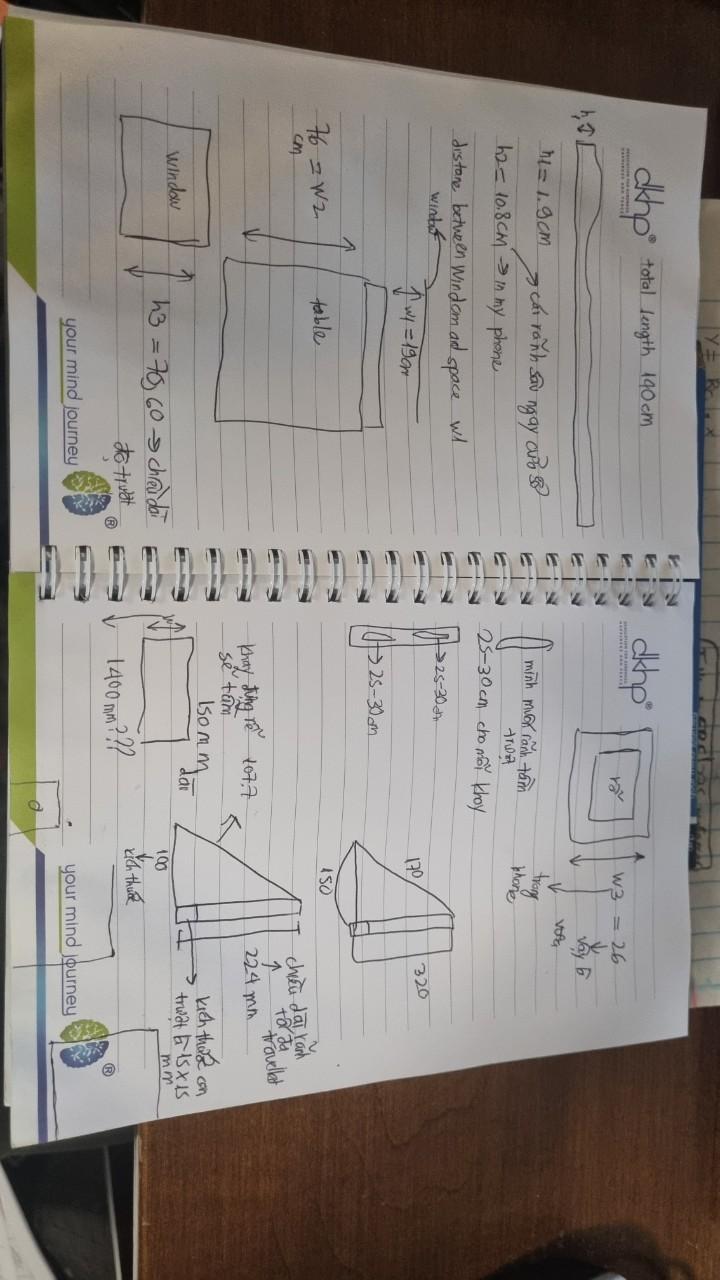 dkhp®
total length 140cm
h1
h1 = 1.9cm
cái rãnh sau ngay cửa sổ
h2 = 10.8cm → in my phone
distane between window and space w1
window
w1 = 19cm
76 = w2
cm
table
window
h3 = 70,60 → chiều dài
độ trượt
your mind journey
®
dkhp®
rổ
w3 = 26
vậy 5
trong
phone
mình muốn rãnh tầm
trượt
25-30cm cho mỗi khay
→ 25-30cm
→ 25-30cm
170
150
320
chiều dài rãnh
tối đa
travellet
224 mm
khay đựng rễ
sẽ tầm
107.7
150 mm
dài
1400mm???
100
kích thước
kích thước con
trượt 5-15x15
mm
your mind journey
®